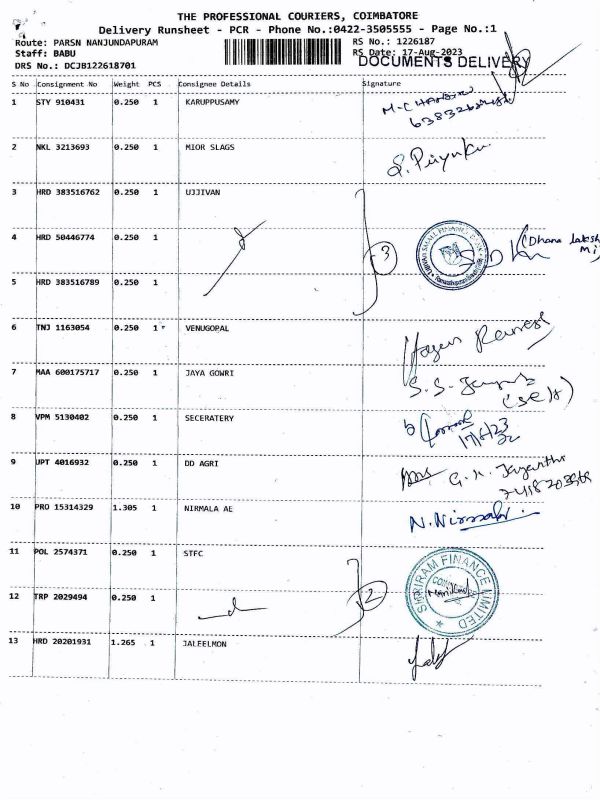 THE PROFESSIONAL COURIERS, COIMBATORE
Delivery Runsheet - PCR - Phone No.:0422-3505555 - Page No.:1
Route: PARSN NANJUNDAPURAM RS No.: 1226187
Staff: BABU RS Date: 17-Aug-2023
DOCUMENTS DELIVERY
DRS No.: DCJB122618701
S No Consignment No Weight PCS Consignee Details Signature
1 STY 910431 0.250 1 KARUPPUSAMY
2 NKL 3213693 0.250 1 MIOR SLAGS S. Priyanka
3 HRD 383516762 0.250 1 UJJIVAN
4 HRD 50446774 0.250 1 3
5 HRD 383516789 0.250 1
6 TNJ 1163054 0.250 1 VENUGOPAL
7 MAA 600175717 0.250 1 JAYA GOWRI
8 VPM 5130402 0.250 1 SECERATERY
9 UPT 4016932 0.250 1 DD AGRI
10 PRO 15314329 1.305 1 NIRMALA AE N. Nirmala
11 POL 2574371 0.250 1 STFC SHRIRAM FINANCE LIMITED
12 TRP 2029494 0.250 1 2
13 HRD 20201931 1.265 1 JALEELMON